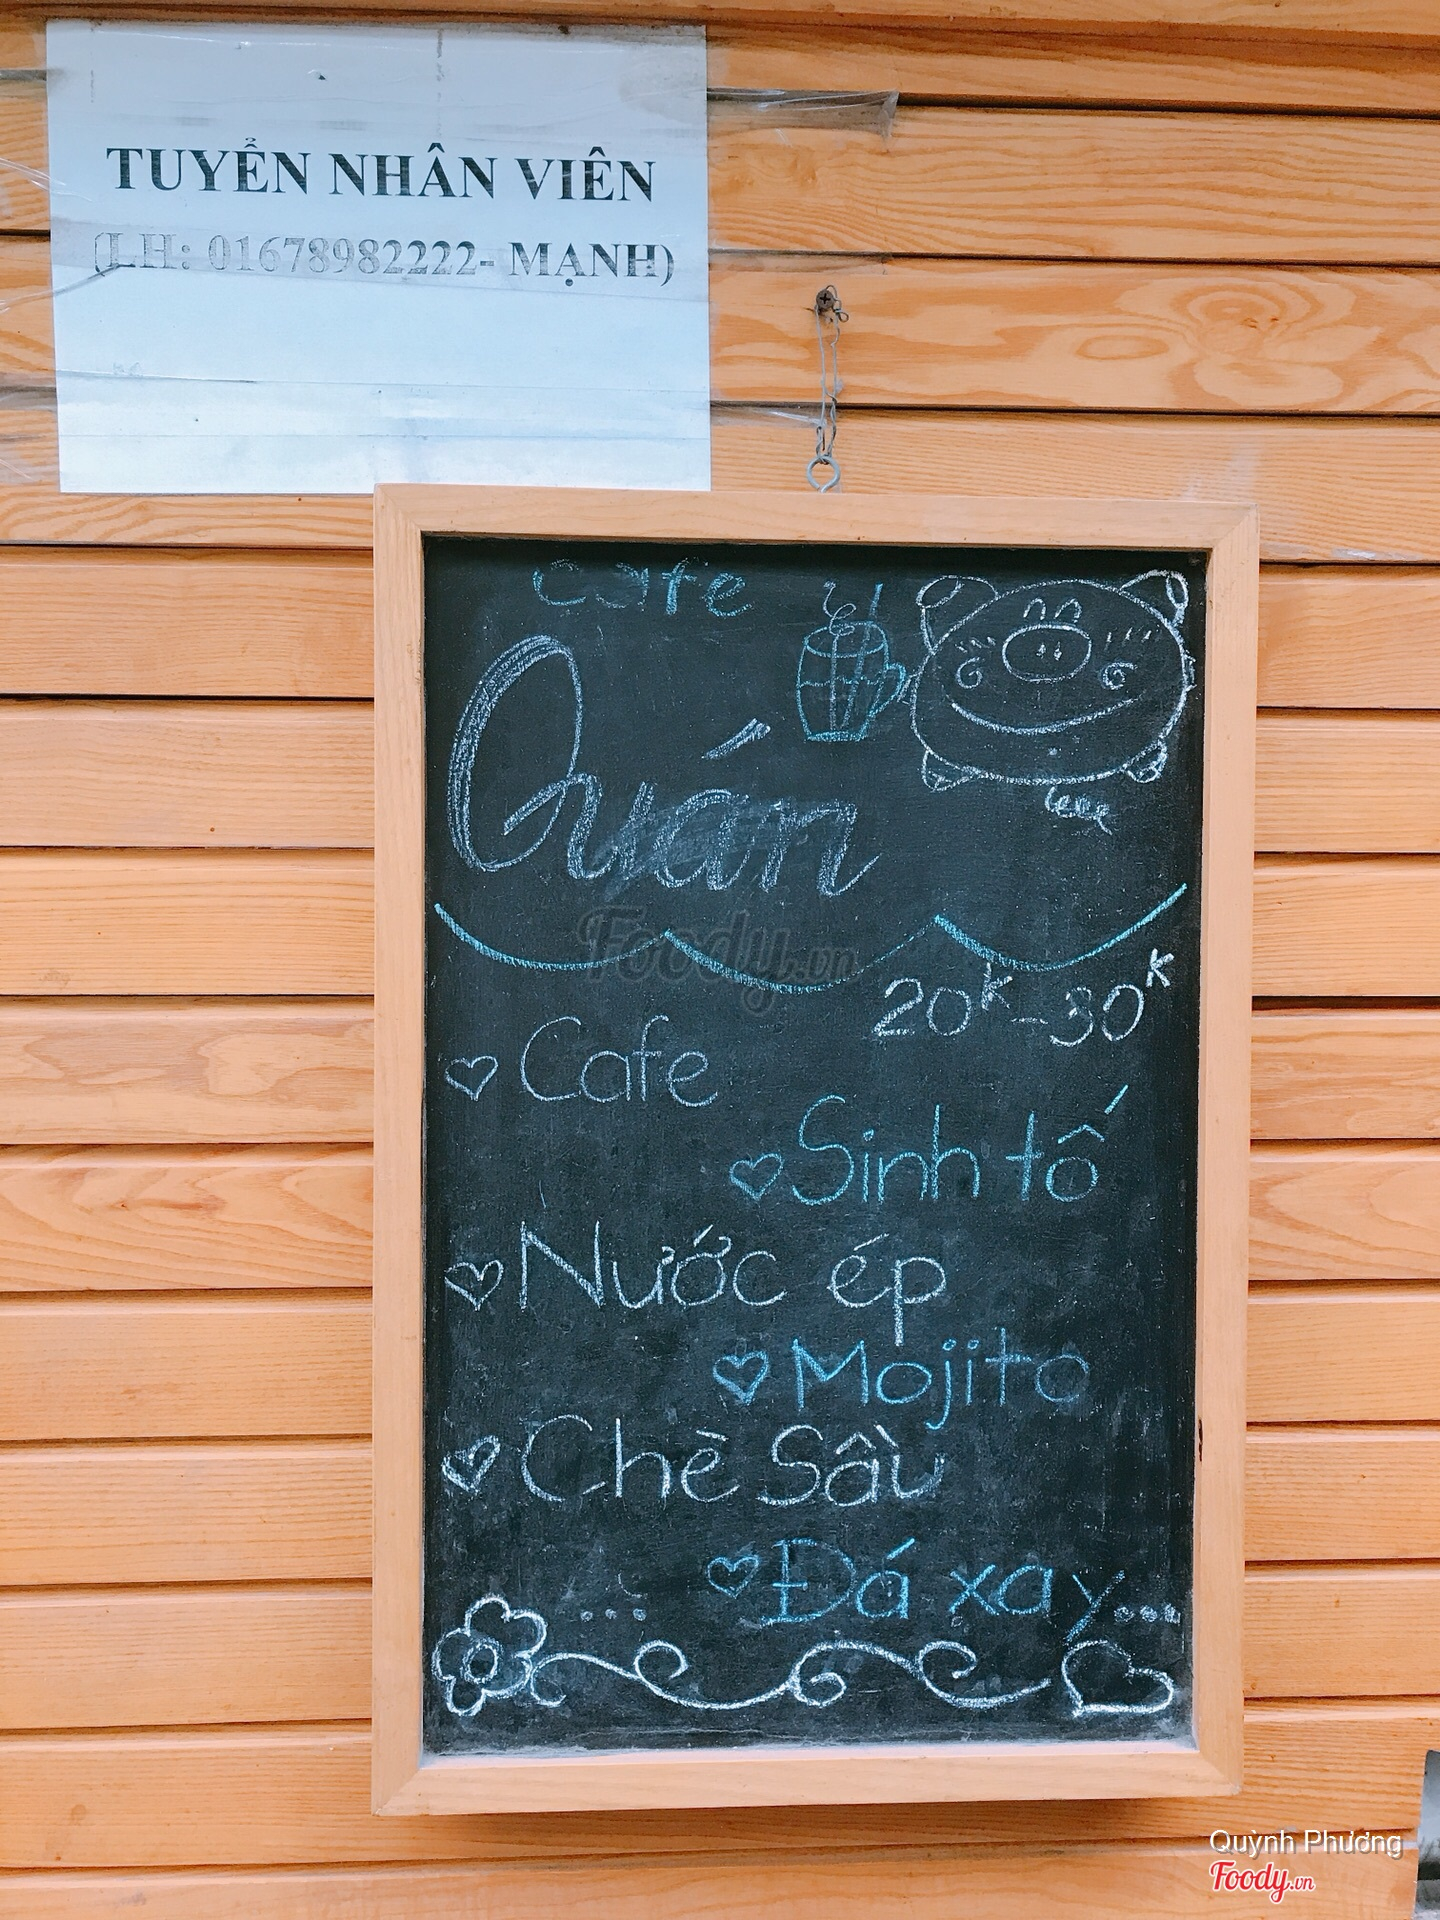 TUYỂN NHÂN VIÊN
(LH: 01678982222- MẠNH)
cafe
Quán
Foody.vn
20K - 30K
Cafe
Sinh tố
Nước ép
Mojito
Chè Sầu
Đá xay...
...
Quỳnh Phương
Foody.vn